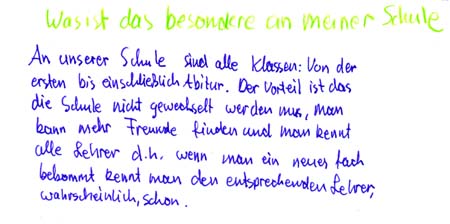 Was ist das besondere an meiner Schule
An unserer Schule sind alle Klassen: Von der
ersten bis einschließlich Abitur. Der Vorteil ist das
die Schule nicht gewechselt werden mus, man
kann mehr Freunde finden und man kennt
alle Lehrer d.h. wenn man ein neues fach
bekommt kennt man den entsprechenden Lehrer,
wahrscheinlich, schon.